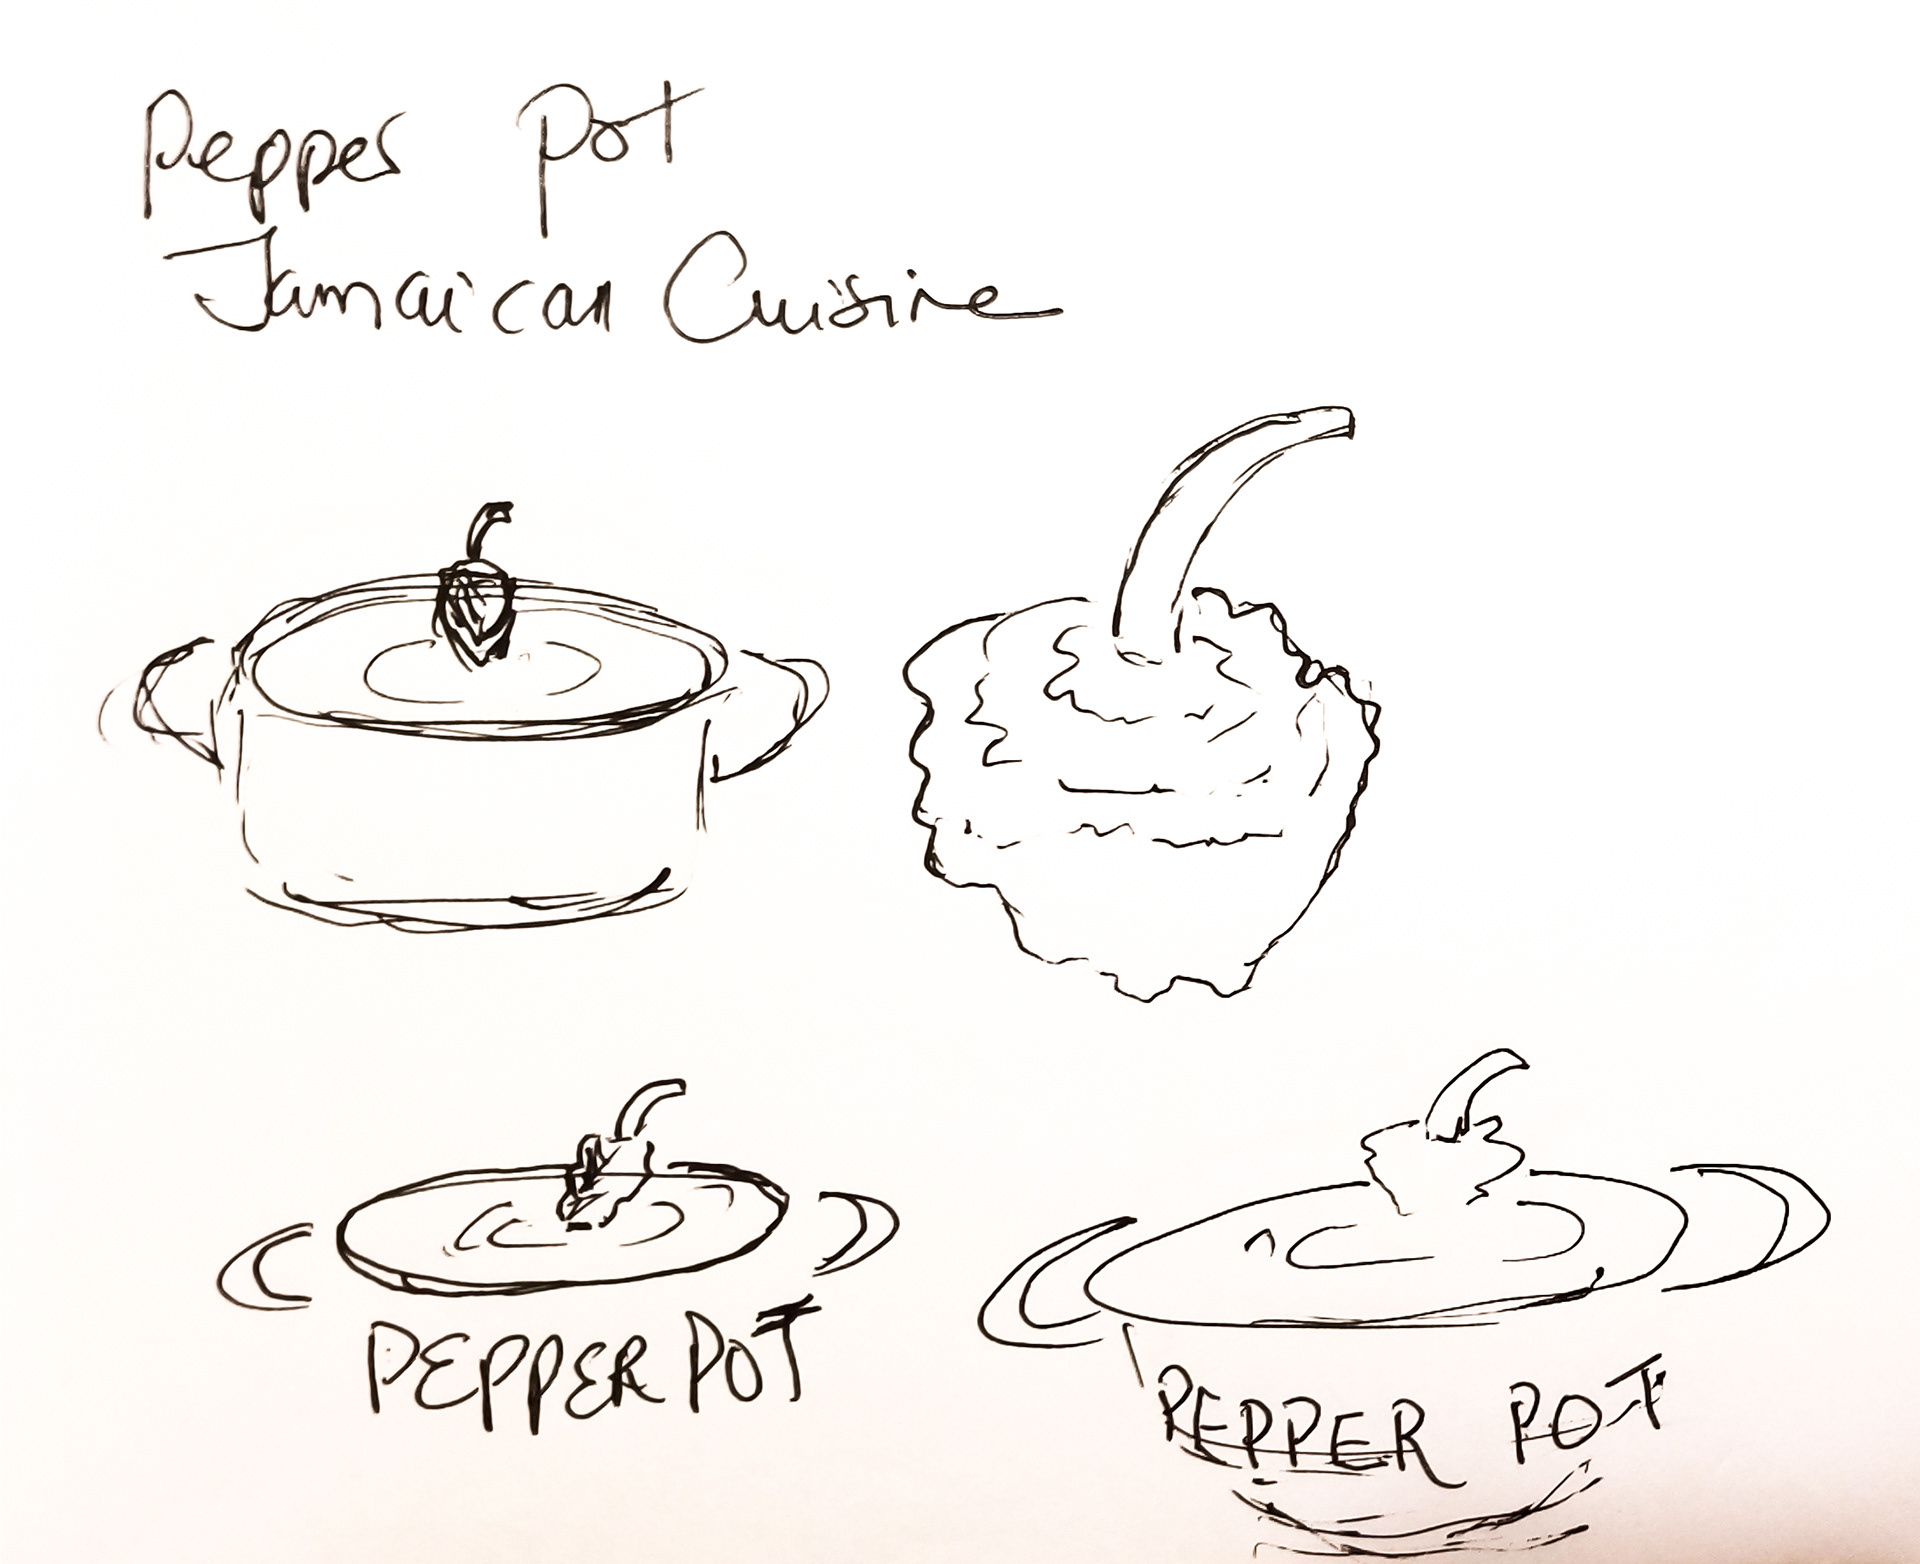 Pepper Pot
Jamaican Cuisine
PEPPER POT
PEPPER POT